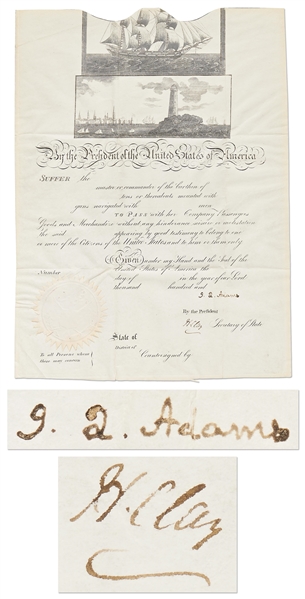 By the President of the United States of America
SUFFER the
master or commander of the burthen of
tons or thereabouts mounted with
guns navigated with men
TO PASS with her Company Passengers
Goods and Merchandize without any hinderance seizure or molestation
the said appearing by good testimony to belong to one
or more of the Citizens of the United States and to him or them only
Given under my Hand and the Seal of the
United States of America the
day of in the year of our Lord
thousand hundred and
Number
J. Q. Adams
By the President
H. Clay Secretary of State
State of
District of
Countersigned by
To all Persons whom
these may concern
J. Q. Adams
H. Clay